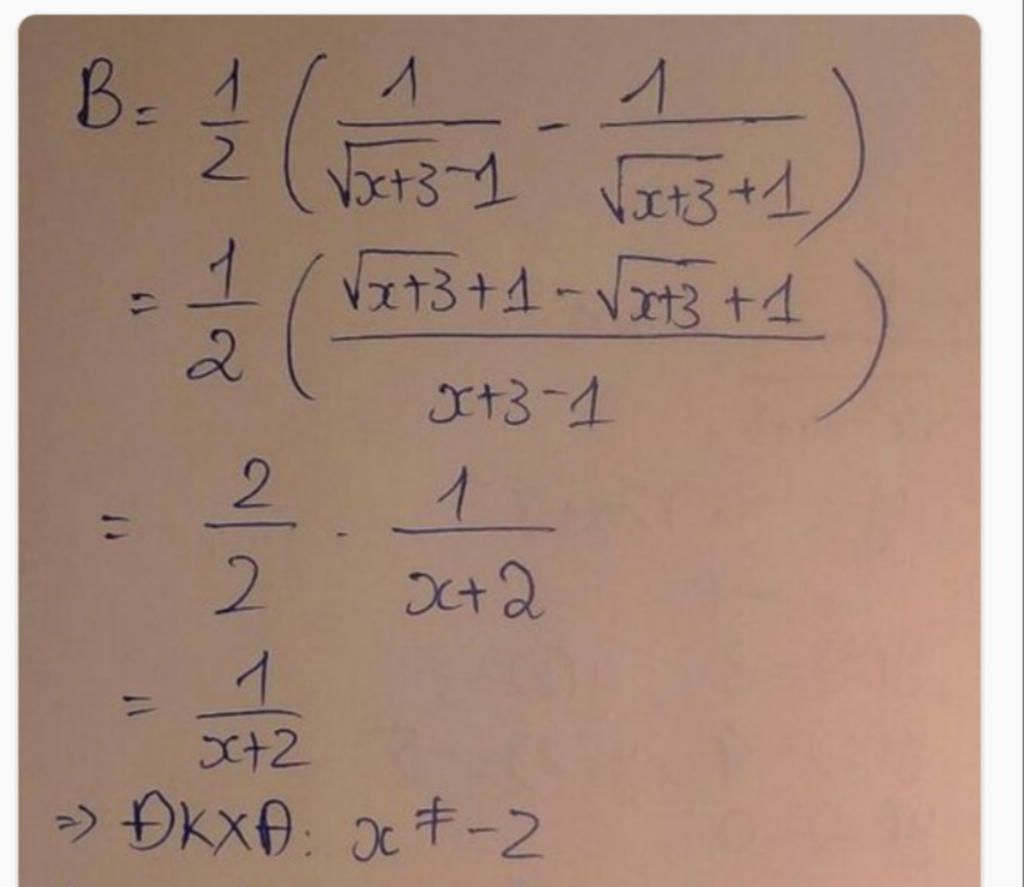 B = \frac{1}{2} \left( \frac{1}{\sqrt{x+3}-1} - \frac{1}{\sqrt{x+3}+1} \right)
= \frac{1}{2} \left( \frac{\sqrt{x+3}+1-\sqrt{x+3}+1}{x+3-1} \right)
= \frac{2}{2} \cdot \frac{1}{x+2}
= \frac{1}{x+2}
⇒ ĐKXĐ: x ≠ -2